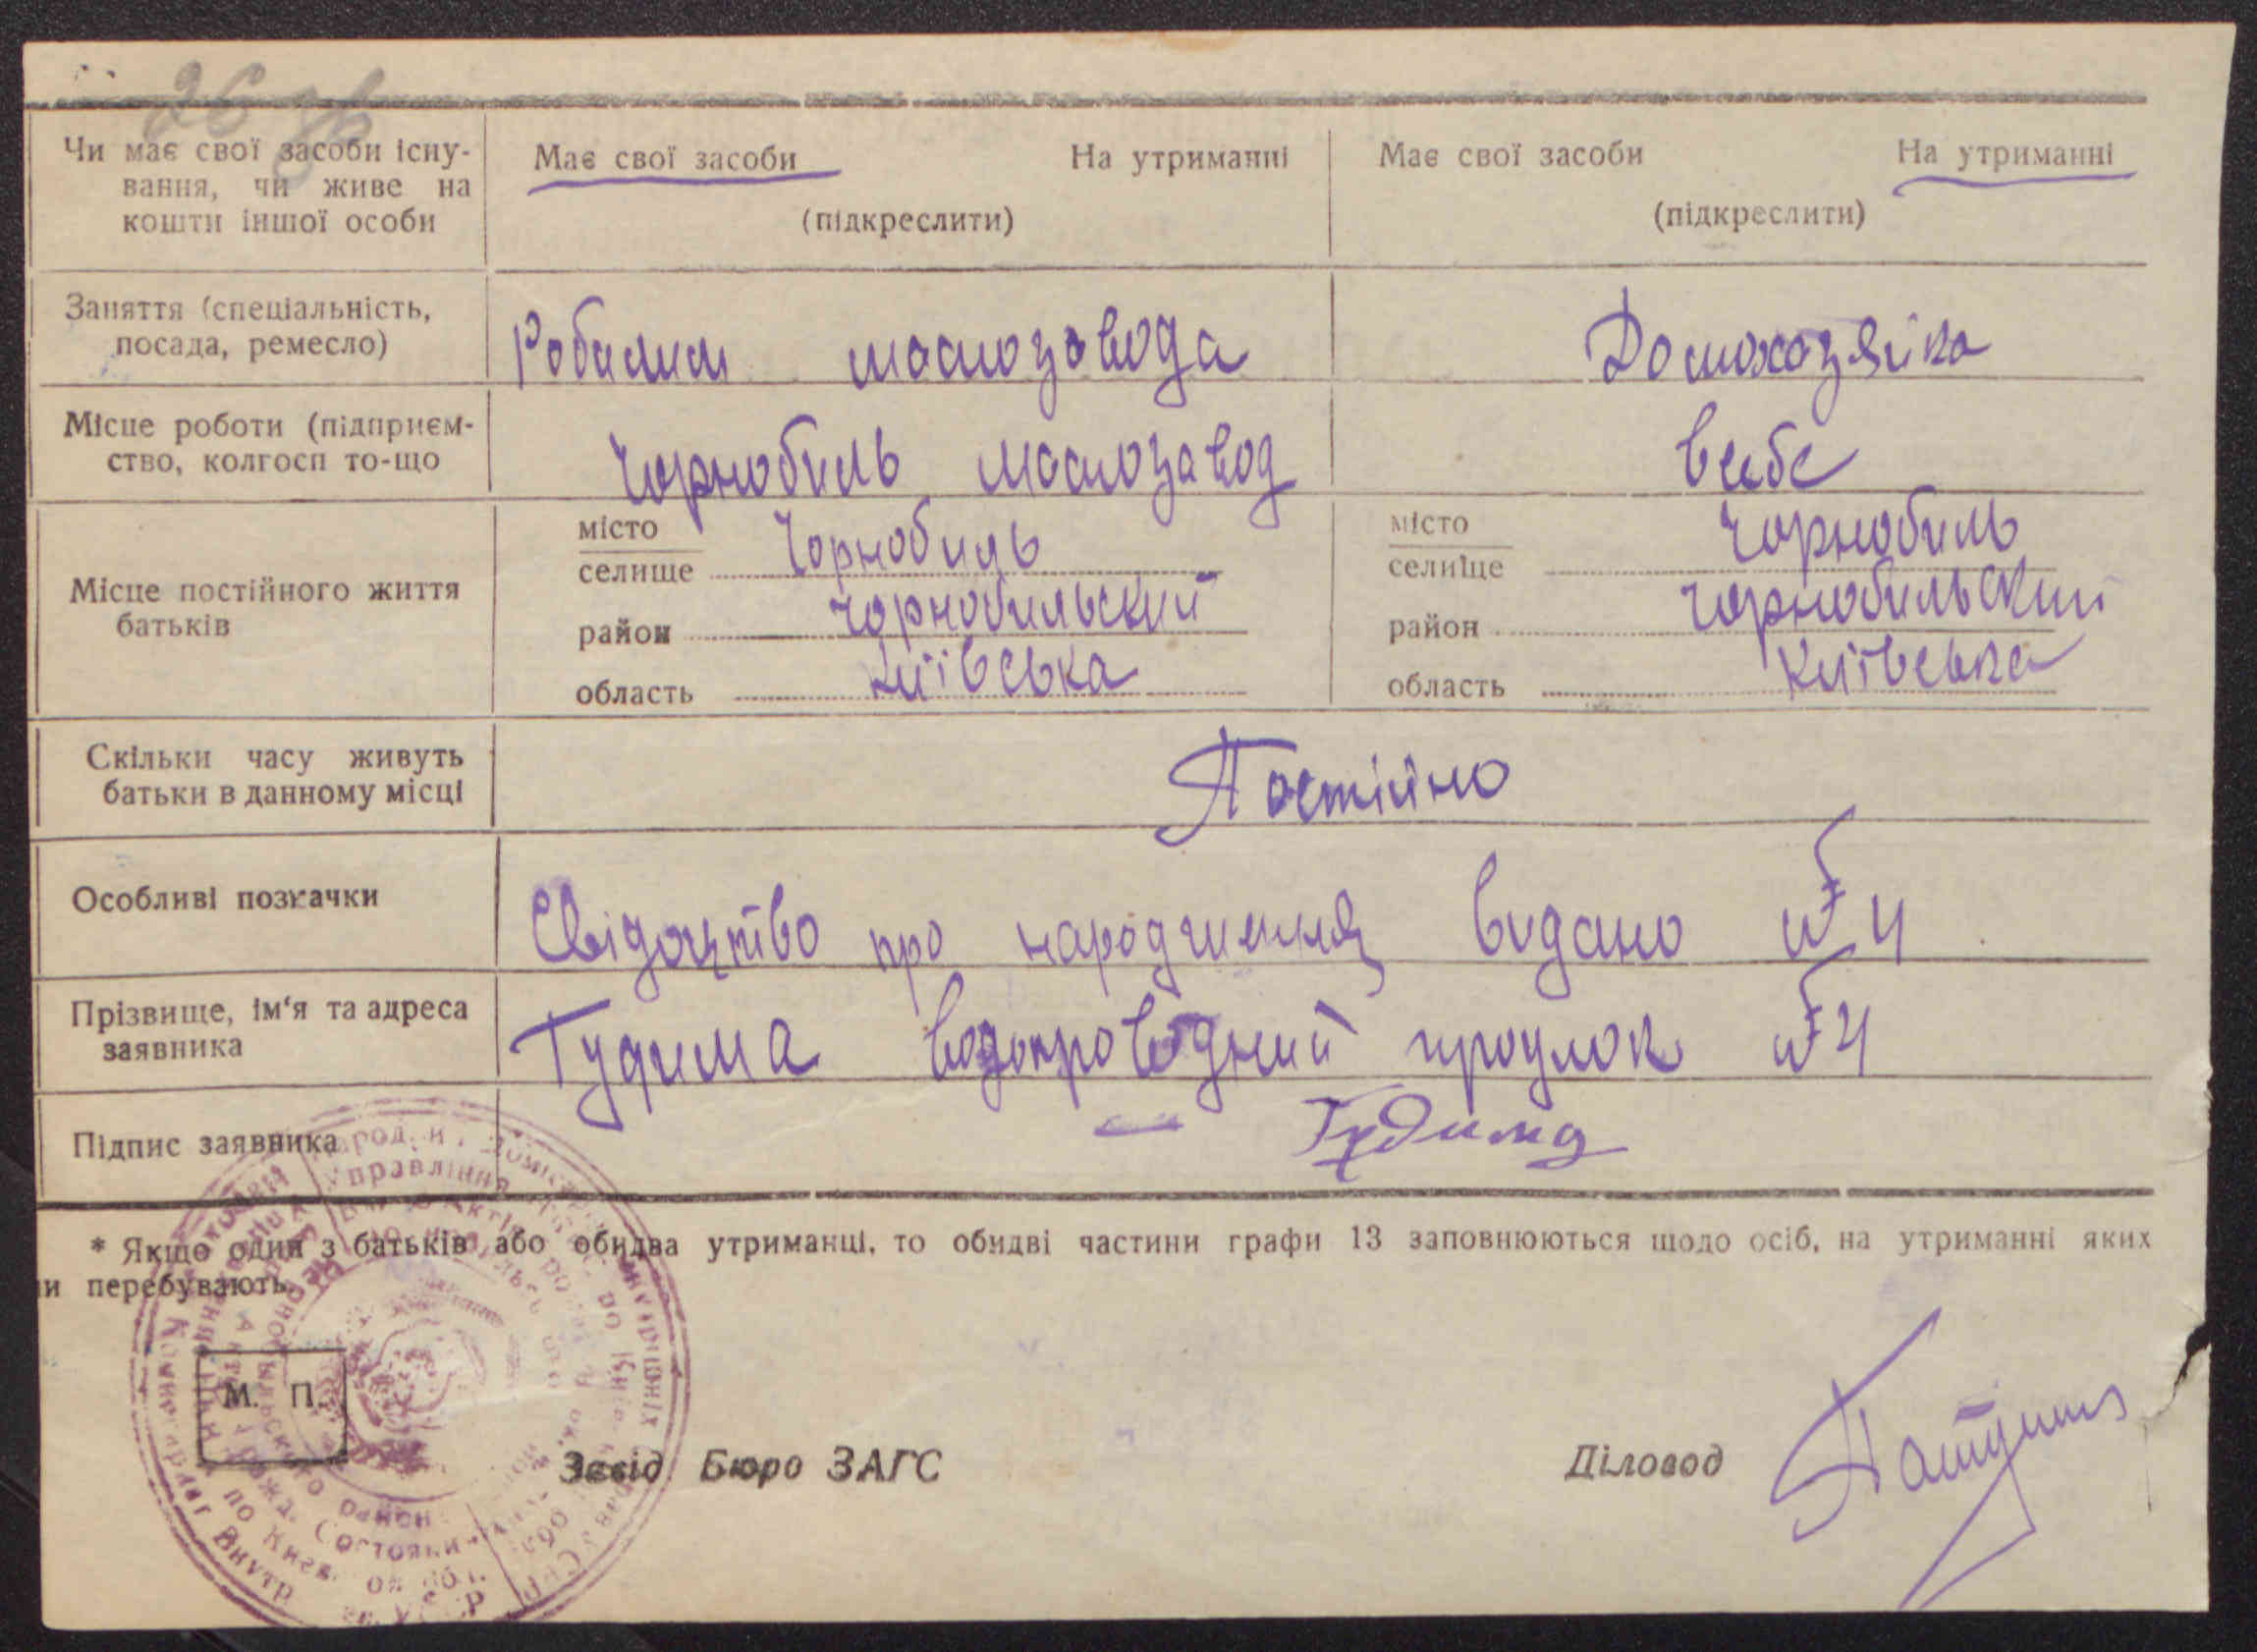 26 зв
Чи має свої засоби існу-
вання, чи живе на
кошти іншої особи
Має свої засоби На утриманні
(підкреслити)
Має свої засоби На утриманні
(підкреслити)
Заняття (спеціальність,
посада, ремесло)
Робитник маслозавода
Домохозяйка
Місце роботи (підприєм-
ство, колгосп то-що
Чорнобиль маслозавод
Місце постійного життя
батьків
місто
селище Чорнобиль
район Чорнобильский
область Київська
місто
селище Чорнобиль
район Чорнобильский
область Київська
Скільки часу живуть
батьки в данному місці
Постійно
Особливі позначки
Свідоцтво про народження видано № 4
Прізвище, ім‘я та адреса
заявника
Гудима водопроводний проулок № 4
Підпис заявника
Гудима
* Якщо один з батьків або обидва утриманці, то обидві частини графи 13 заповнюються щодо осіб, на утриманні яких
и перебувають.
М. П.
Завід Бюро ЗАГС
Діловод